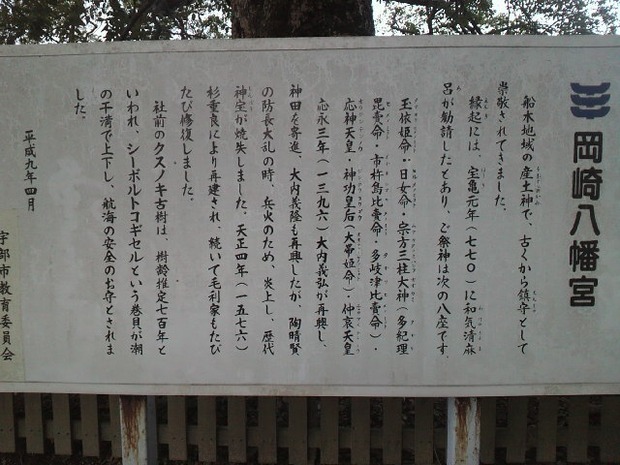 岡崎八幡宮
船木地域の産土神で、古くから鎮守として
崇敬されてきました。
縁起には、宝亀元年(七七〇)に和気清麻
呂が勧請したとあり、ご祭神は次の八座です。
玉依姫命・日女命・宗方三柱大神(多紀理
毘賣命・市杵島比賣命・多岐津比賣命)・
応神天皇・神功皇后(大帯姫命)・仲哀天皇
応永三年(一三九六)大内義弘が再興し、
神田を寄進、大内義隆も再興したが、陶晴賢
の防長大乱の時、兵火のため、炎上し、歴代
神宝が焼失しました。天正四年(一五七六)
杉重良により再建され、続いて毛利家もたび
たび修復しました。
社前のクスノキ古樹は、樹齢推定七百年と
いわれ、シーボルトコギセルという巻貝が潮
の干満で上下し、航海の安全のお守とされま
した。
平成九年四月
宇部市教育委員会